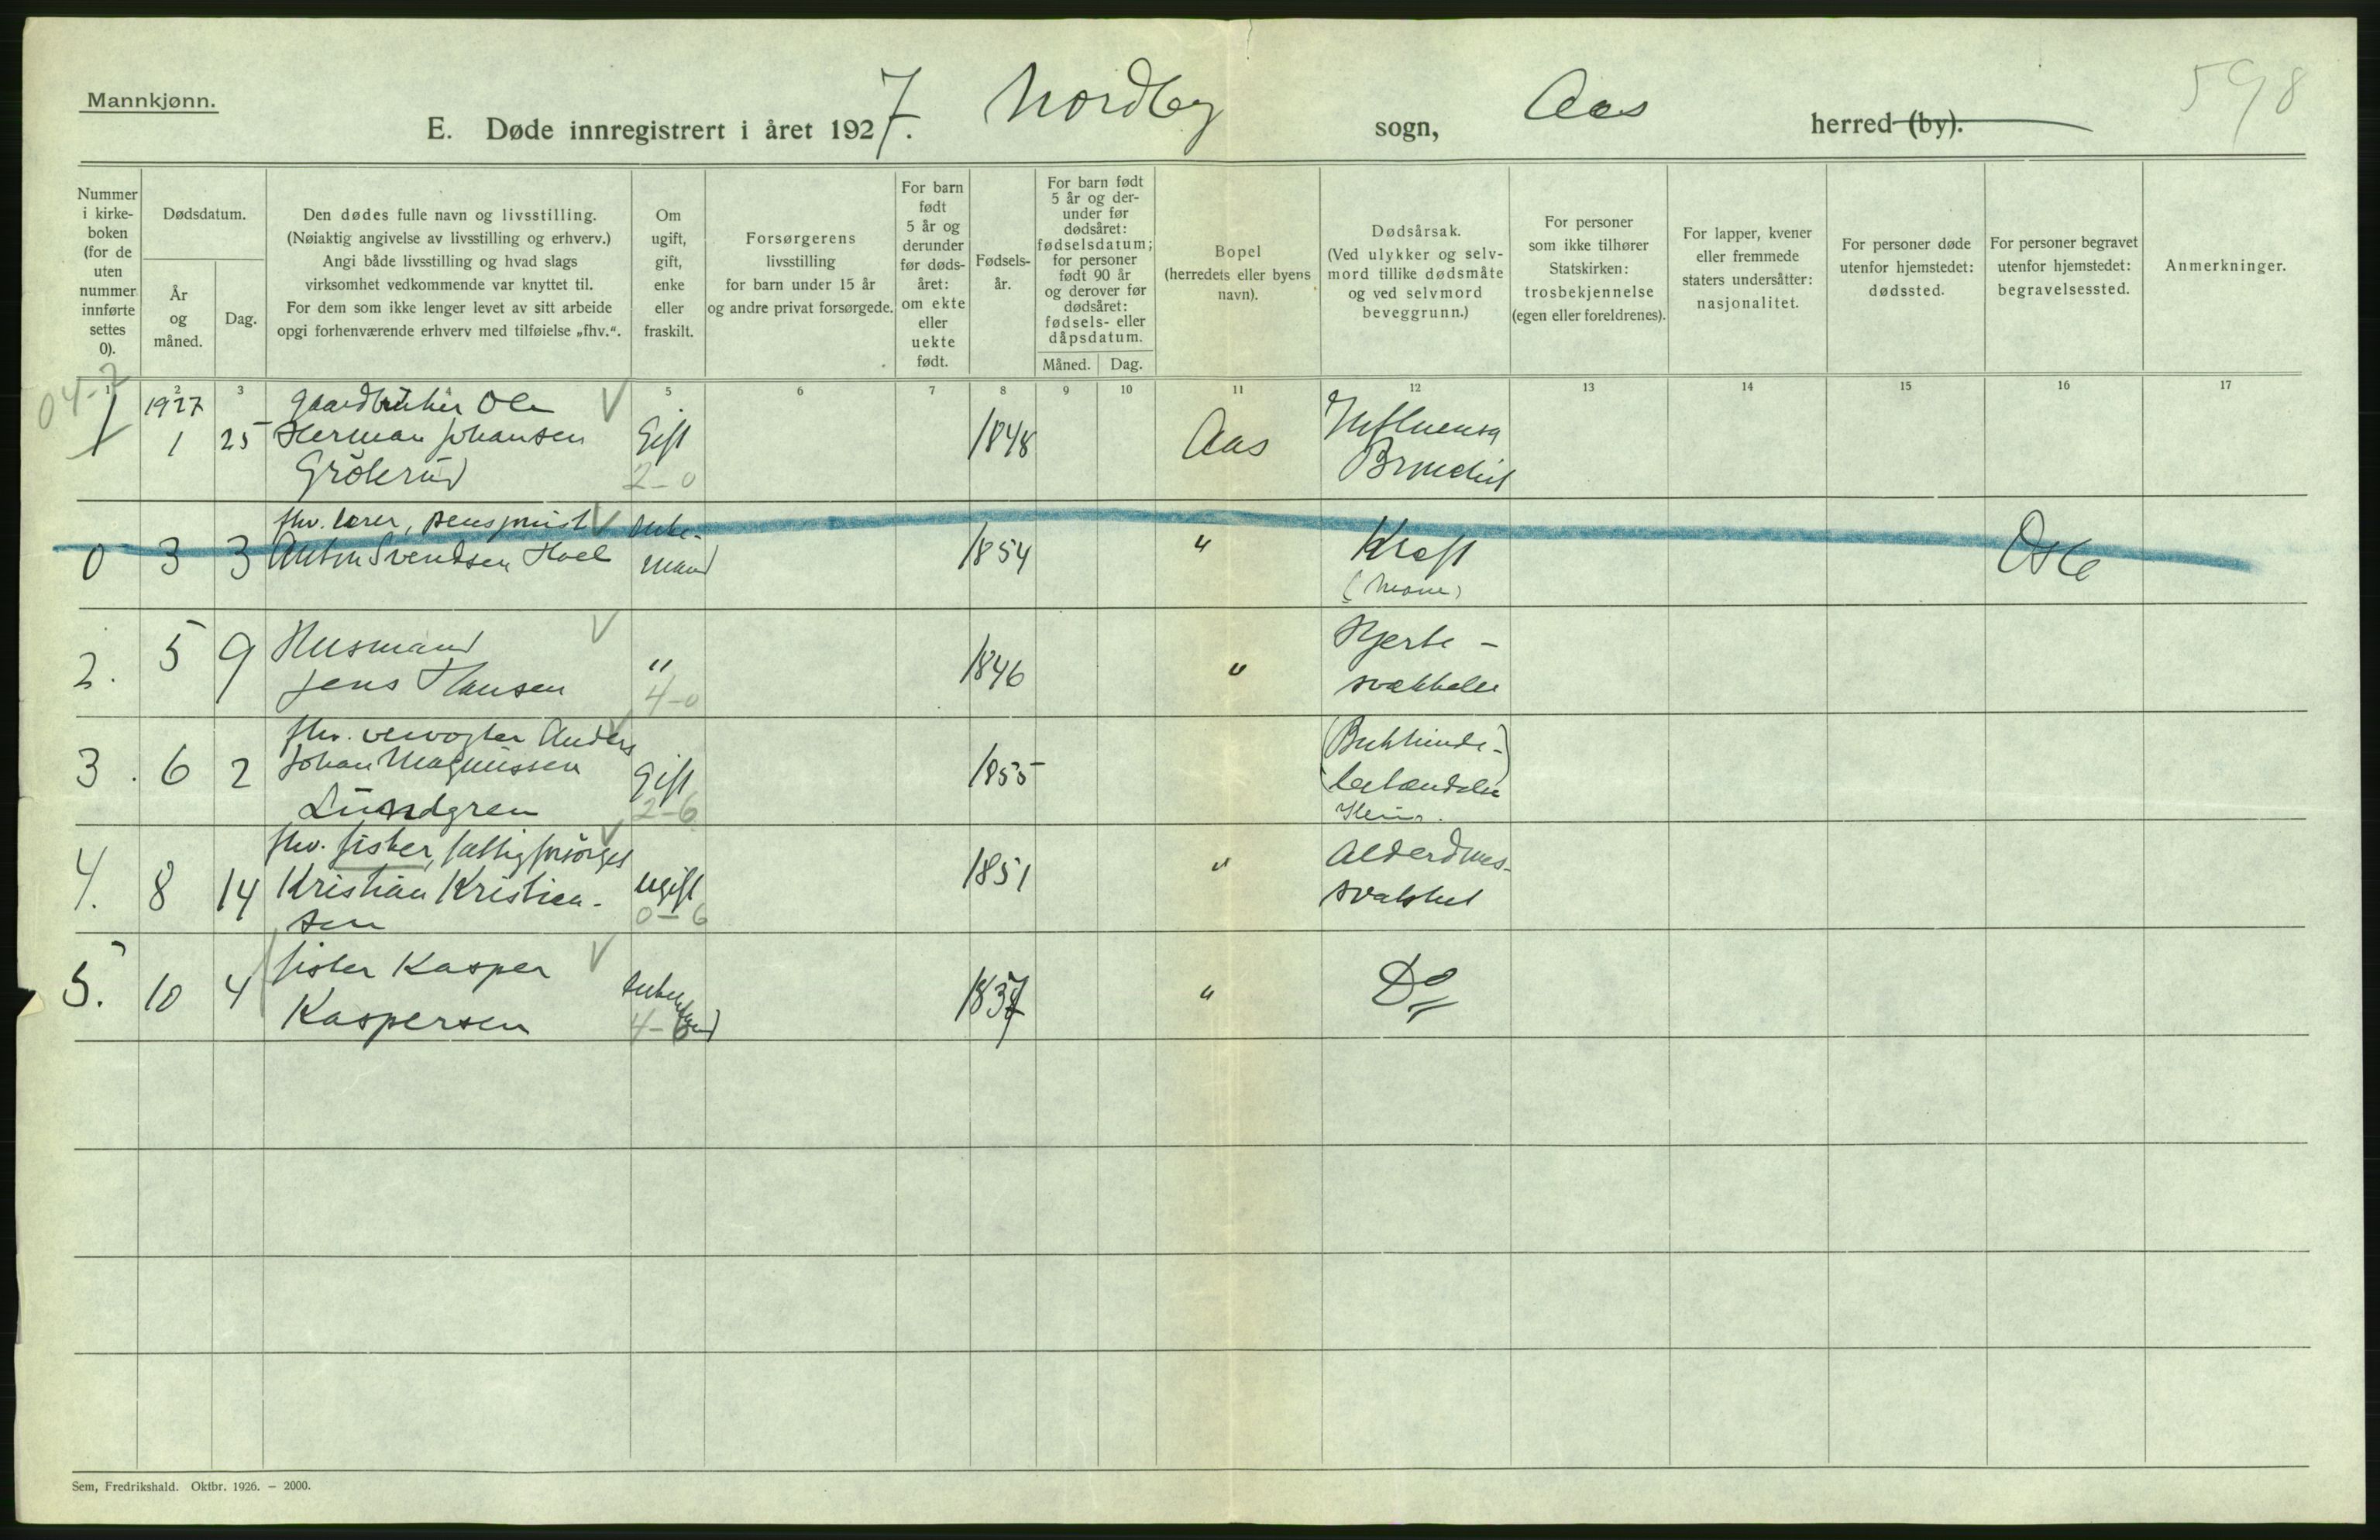 Mannkjønn.
598
E. Døde innregistrert i året 1927. Nordby sogn, Aas herred (by).
Nummer i kirkeboken (for de uten nummer innførte settes 0).
Dødsdatum.
År og måned.
Dag.
Den dødes fulle navn og livsstilling.
(Nøiaktig angivelse av livsstilling og erhverv.)
Angi både livsstilling og hvad slags
virksomhet vedkommende var knyttet til.
For dem som ikke lenger levet av sitt arbeide
opgi forhenværende erhverv med tilføielse „fhv.“.
Om ugift, gift, enke eller fraskilt.
Forsørgerens
livsstilling
for barn under 15 år
og andre privat forsørgede.
For barn født 5 år og derunder før dødsåret: om ekte eller uekte født.
Fødselsår.
For barn født 5 år og derunder før dødsåret: fødselsdatum; for personer født 90 år og derover før dødsåret: fødsels- eller dåpsdatum.
Måned.
Dag.
Bopel
(herredets eller byens
navn).
Dødsårsak.
(Ved ulykker og selvmord tillike dødsmåte
og ved selvmord
beveggrunn.)
For personer
som ikke tilhører
Statskirken:
trosbekjennelse
(egen eller foreldrenes).
For lapper, kvener
eller fremmede
staters undersåtter:
nasjonalitet.
For personer døde
utenfor hjemstedet:
dødssted.
For personer begravet
utenfor hjemstedet:
begravelsessted.
Anmerkninger.
1 2 3 5 6 7 8 9 10 11 12 13 14 15 16 17
04-2
1 1927 1 25 Gaardbruker Ole
Herman Johansen Gift 1848 Aas Influensa
2-0 Bronchit
0 3 3 fhv. lærer, pensjonist
Anton Svendsen Hoel Enkemand 1854 " Kræft Oslo
2. 5 9 Husmand
Jens Hansen " 1846 " Hjerte-
4-0 svækkelse
3. 6 2 fhv. Anders
Johan Magnussen Gift 1855
Lundgren 2-6
4. 8 14 fhv. fisker, fattigforsørget
Kristian Kristian- ugift 1851 " Alderdoms-
sen 0-6 svakhet
5. 10 4 fisker Kasper
Kaspersen Enkemand 1837 " Do
4-6
Sem, Fredrikshald. Oktbr. 1926. – 2000.